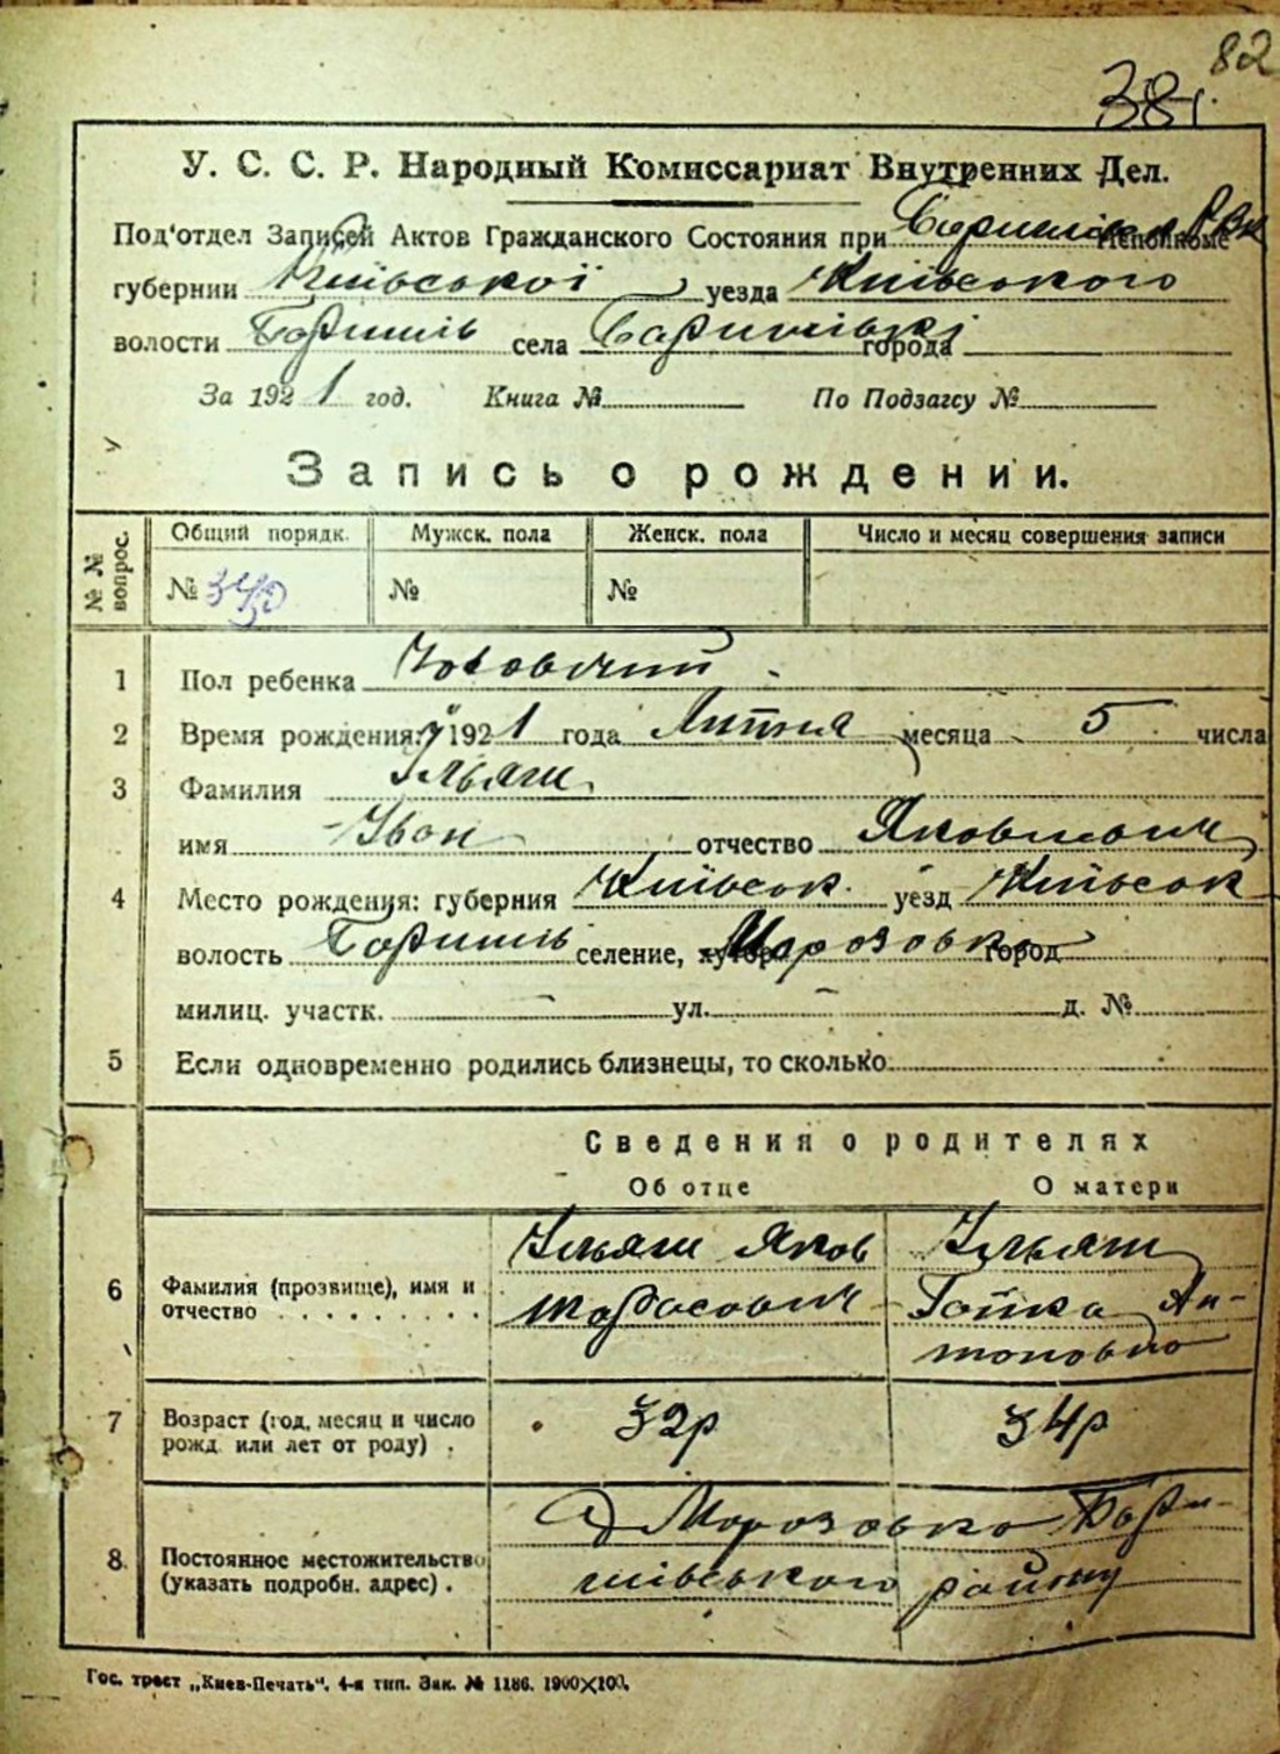 82
381.
У. С. С. Р. Народный Комиссариат Внутренних Дел.
Под'отдел Записей Актов Гражданского Состояния при Исполкоме
губернии Київської уезда Київського
волости Баришів села Баришівкі города
За 1921 год. Книга № По Подзагсу №
Запись о рождении.
№ № вопрос. Общий порядк. Мужск. пола Женск. пола Число и месяц совершения записи
№ № №
1 Пол ребенка Чоловічий
2 Время рождения: 1921 года Липня месяца 5 числа
3 Фамилия Ільяш
имя Іван отчество Яковлевич
4 Место рождения: губерния Київськ. уезд Київськ
волость Баришів селение, хутор Морозовка город
милиц. участк. ул. д. №
5 Если одновременно родились близнецы, то сколько
Сведения о родителях
Об отце О матери
Ільяш Яков Ільяш
6 Фамилия (прозвище), имя и отчество Тарасович Гапка Ан-
тоновна
7 Возраст (год, месяц и число рожд. или лет от роду) . 32р 34р
Морозовка Бари-
8. Постоянное местожительство (указать подробн. адрес) . шівського району
Гос. трест „Киев-Печать“. 4-я тип. Зак. № 1186. 1900×100.